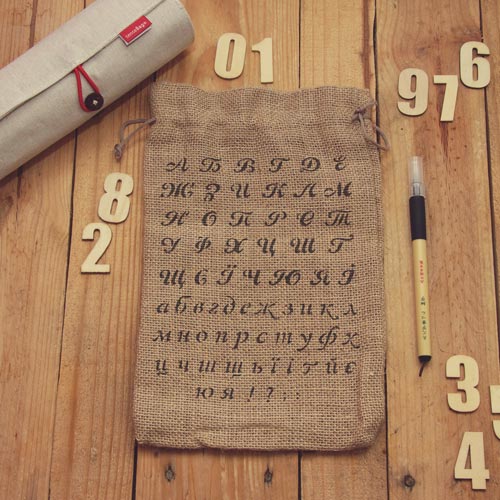 01
6
97
8
2
А Б В Г Д Е
Ж З И К Л М
Н О П Р С Т
У Ф Х Ц Ш Ґ
Щ Є Ї Ч Ю Я І
а б в г д е ж з и к л
м н о п р с т у ф х
ц ч ш щ ь ї і ґ й є
ю я ! ? . ,
3
4